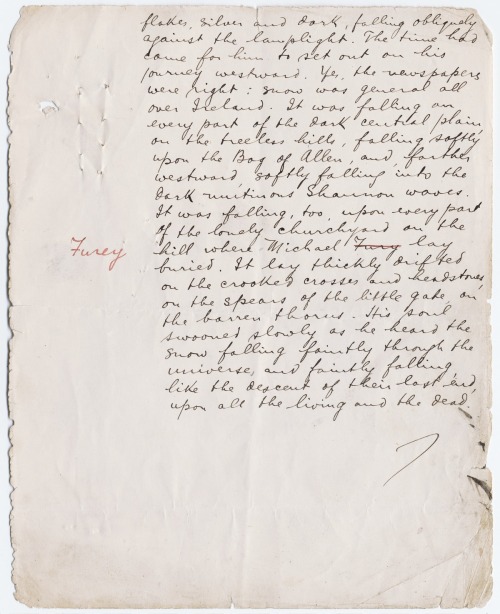 flakes, silver and dark, falling obliquely
against the lamplight. The time had
come for him to set out on his
journey westward. Yes, the newspapers
were right: snow was general all
over Ireland. It was falling on
every part of the dark central plain,
on the treeless hills, falling softly
upon the Bog of Allen, and, farther
westward, softly falling into the
dark mutinous Shannon waves.
It was falling, too, upon every part
of the lonely churchyard on the
hill where Michael Fury lay
Furey
buried. It lay thickly drifted
on the crooked crosses and headstones,
on the spears of the little gate, on
the barren thorns. His soul
swooned slowly as he heard the
snow falling faintly through the
universe, and faintly falling,
like the descent of their last end,
upon all the living and the dead.